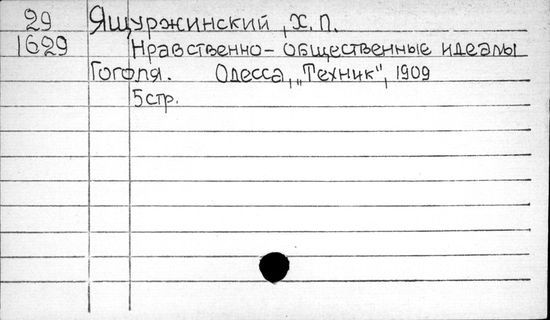 29 Ящуржинский, Х. П.
1629 Нравственно-общественные идеалы
Гоголя. Одесса, „Техник", 1909
5 стр.